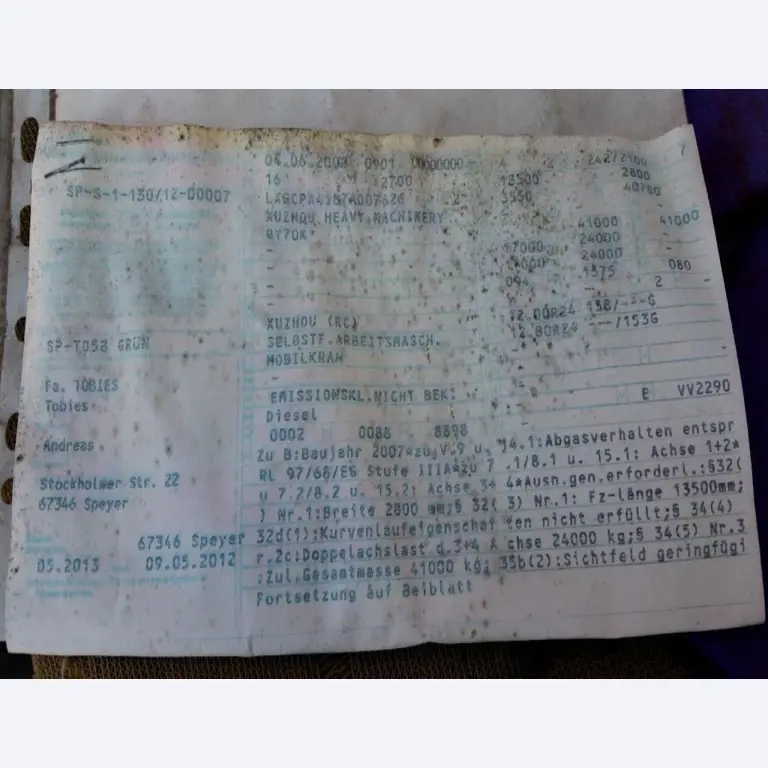 SP-S-1-130/12-00007
SP-T058 GRÜN
Fa. TOBIES
Tobies
Andreas
Stockholmer Str. 22
67346 Speyer
67346 Speyer
05.2013 09.05.2012
0901
16 2700
XUZHOU HEAVY MACHINERY
QY70K
-
-
-
-
XUZHOU (RC)
SELBSTF.ARBEITSMASCH.
MOBILKRAN
-
EMISSIONSKL.NICHT BEK.
Diesel
0002 0088 8898
242/2100 7
13500 2800
3550
41000 41000
17000 24000
24000
1375 080
09 2 -
/153G
E VV2290
Zu B:Baujahr 2007*zu V.9 u. 14.1:Abgasverhalten entspr
RL 97/68/EG Stufe IIIA*zu 7.1/8.1 u. 15.1: Achse 1+2*
u 7.2/8.2 u. 15.2: Achse 3+4*Ausn.gen.erforderl.:§32(
) Nr.1:Breite 2800 mm;§ 32( 3) Nr.1: Fz-länge 13500mm;
32d(1):Kurvenlaufeigenschaf ten nicht erfüllt;§ 34(4)
r.2c:Doppelachslast d.3+4 Achse 24000 kg;§ 34(5) Nr.3
:Zul.Gesamtmasse 41000 kg; 35b(2):Sichtfeld geringfügi
Fortsetzung auf Beiblatt